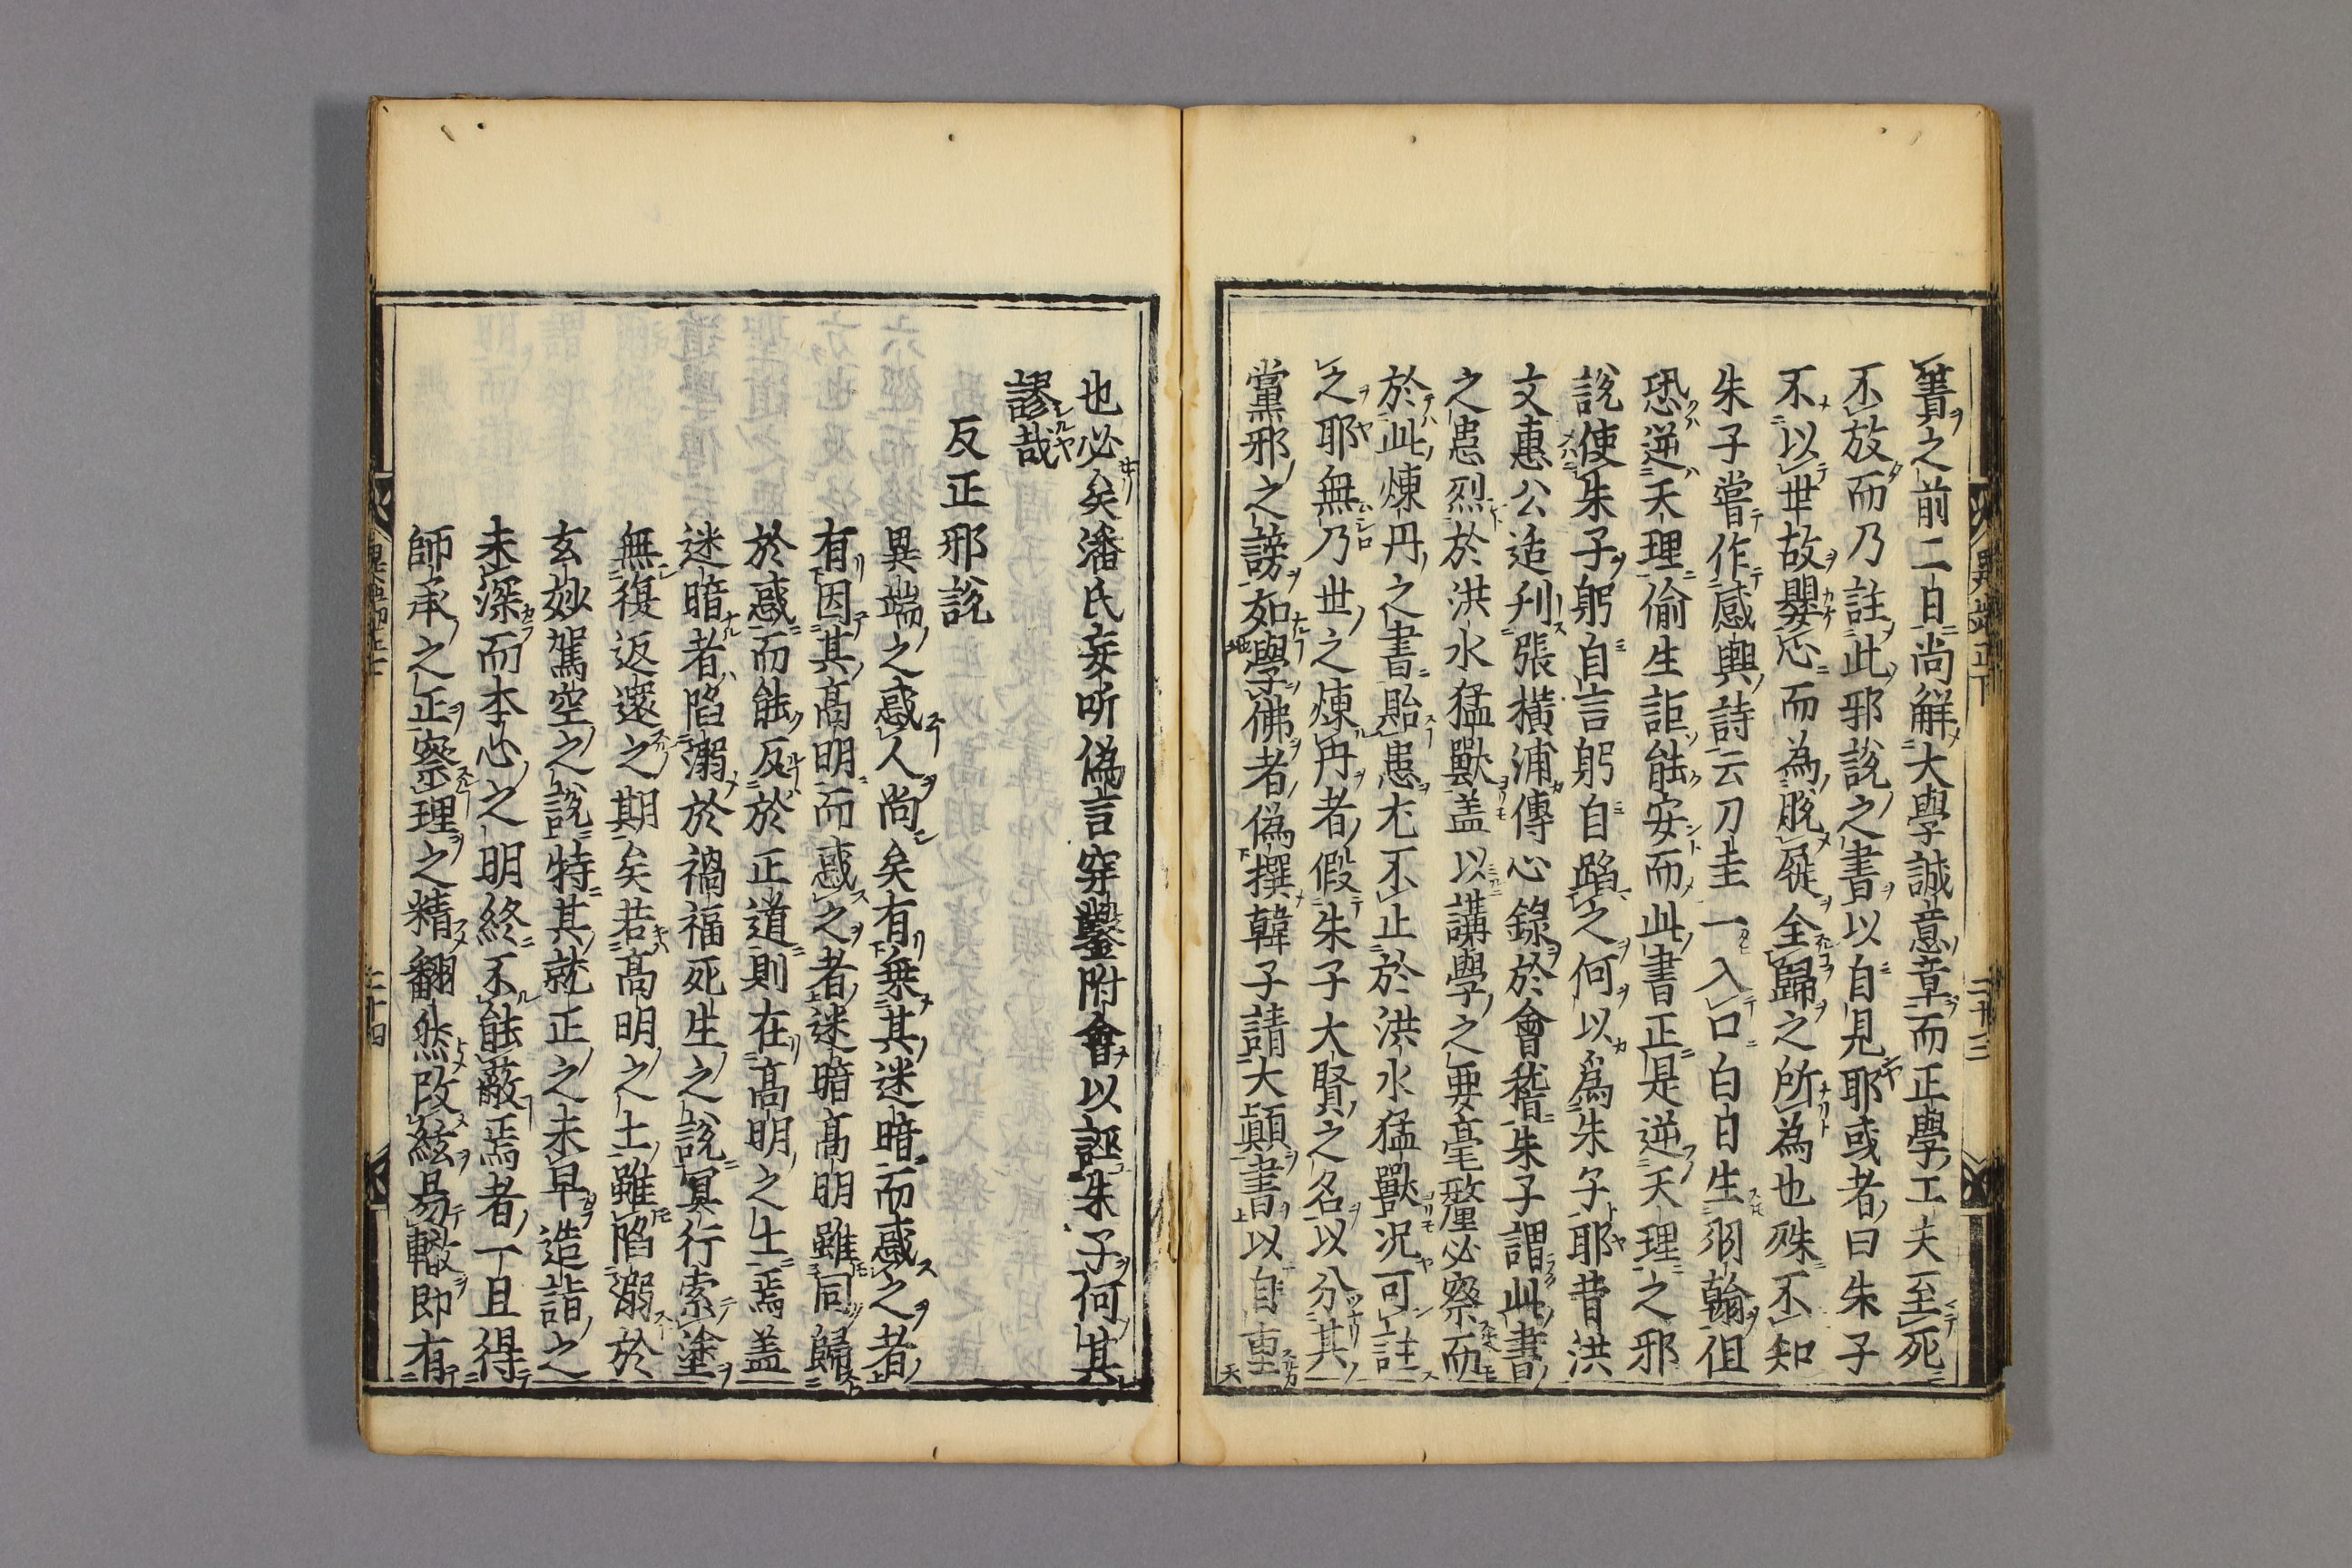 簀之前二日尚觧大學誠意章而正學工夫至死
不放而乃註此邪說之書以自見耶或者曰朱子
不以丗故嬰心而為脫屣全歸之所為也殊不知
朱子嘗作感興詩云刀圭一入口白日生羽翰但
恐逆天理偷生詎能安而此書正是逆天理之邪
說使朱子躬自言躬自蹈之何以為朱子耶昔洪
文惠公适刋張橫浦傳心錄於會稽朱子謂此書
之患烈於洪水猛獸盖以講學之要毫釐必察而
於此煉丹之書貽患尤不止於洪水猛獸况可註
之耶無乃丗之煉丹者假朱子大賢之名以分其
黨邪之謗如學佛者偽撰韓子請大顛書以自重
異端正下
二十三
也必矣潘氏妄听偽言穿鑿附會以誣朱子何其
謬哉
反正邪說
異端之惑人尚矣有乗其迷暗而惑之者
有因其髙明而惑之者迷暗髙明雖同歸
於惑而能反於正道則在髙明之士焉盖
迷暗者陷溺於禍福死生之說冥行索塗
無復返還之期矣若髙明之士雖陷溺於
玄妙駕空之說特其就正之未早造詣之
未深而本心之明終不能蔽焉者一且得
師承之正察理之精翻然改絃易轍即有
二十四